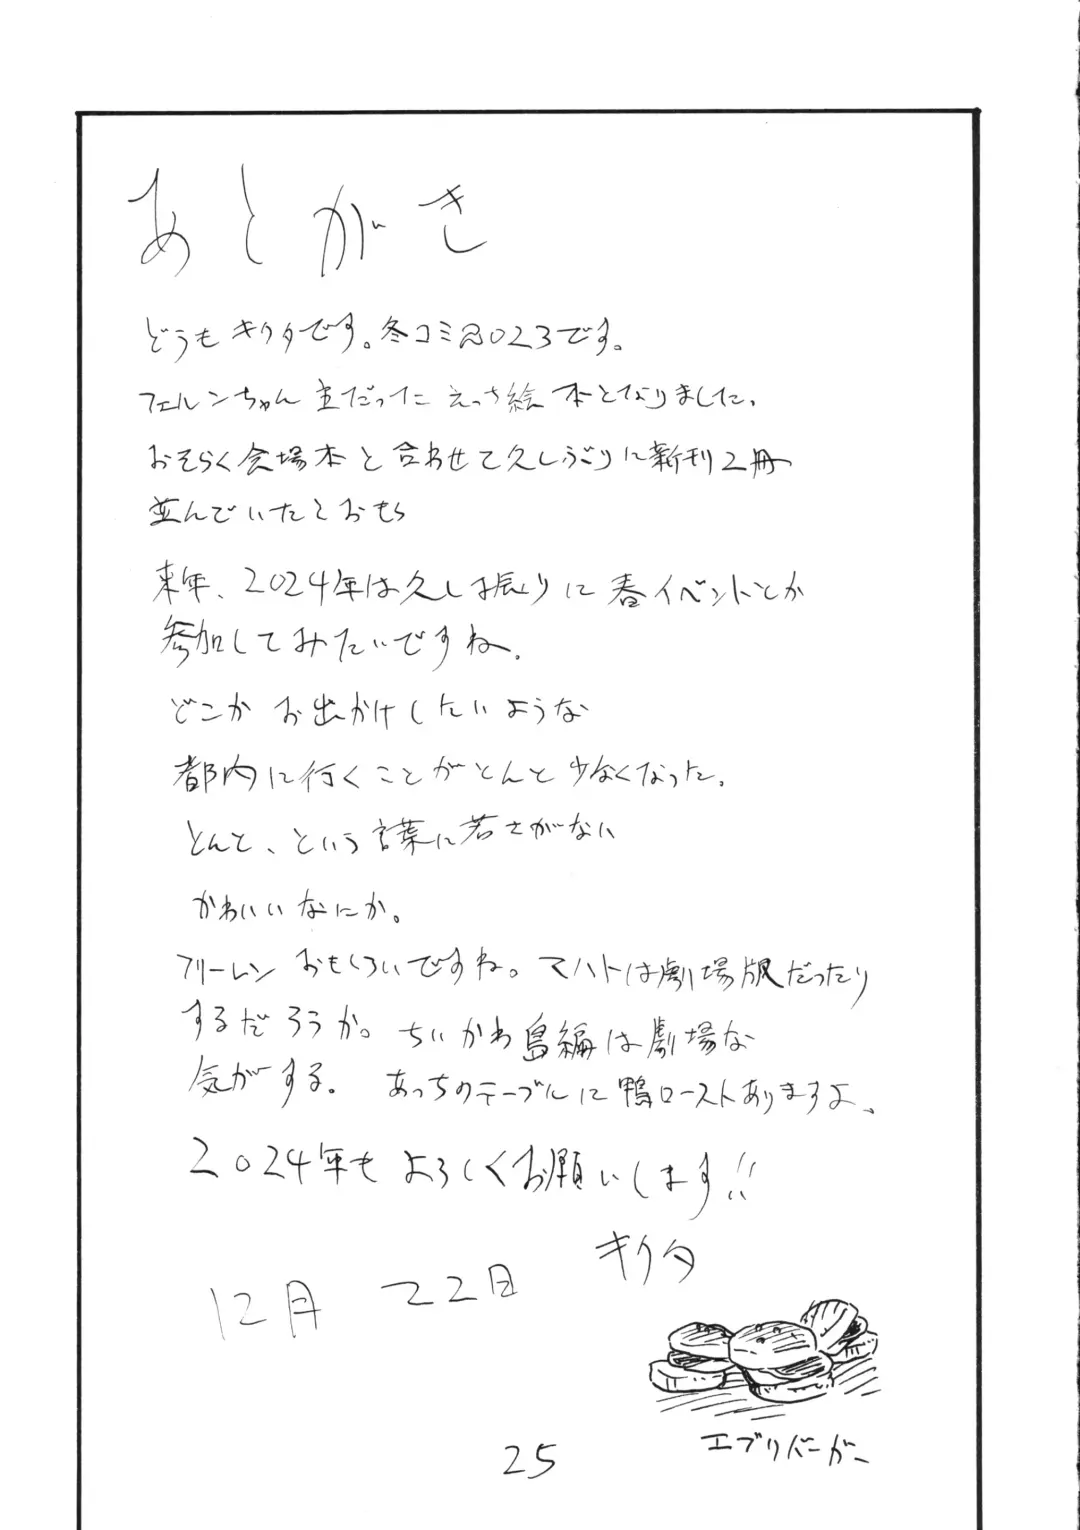 あとがき
どうもキクタです。冬コミ2023です。
フェルンちゃん主だった えっさ絵本となりました。
おそらく会場本と合わせて久しぶりに新刊2冊
並んでいたとおもう
来年、2024年は久し振りに春イベントとか
参加してみたいですね。
どこかお出かけしたいような
都内に行くことがとんと少なくなった。
とんと、という言葉に若さがない
かわいいなにか。
フリーレンおもしろいですね。マハトは劇場版だったり
するだろうか。ちいかわ島編は劇場な
気がする。 あっちのテーブルに鴨ローストありますよ、
2024年もよろしくお願いします!!
キクタ
12月 22日
エブリバーガー
25